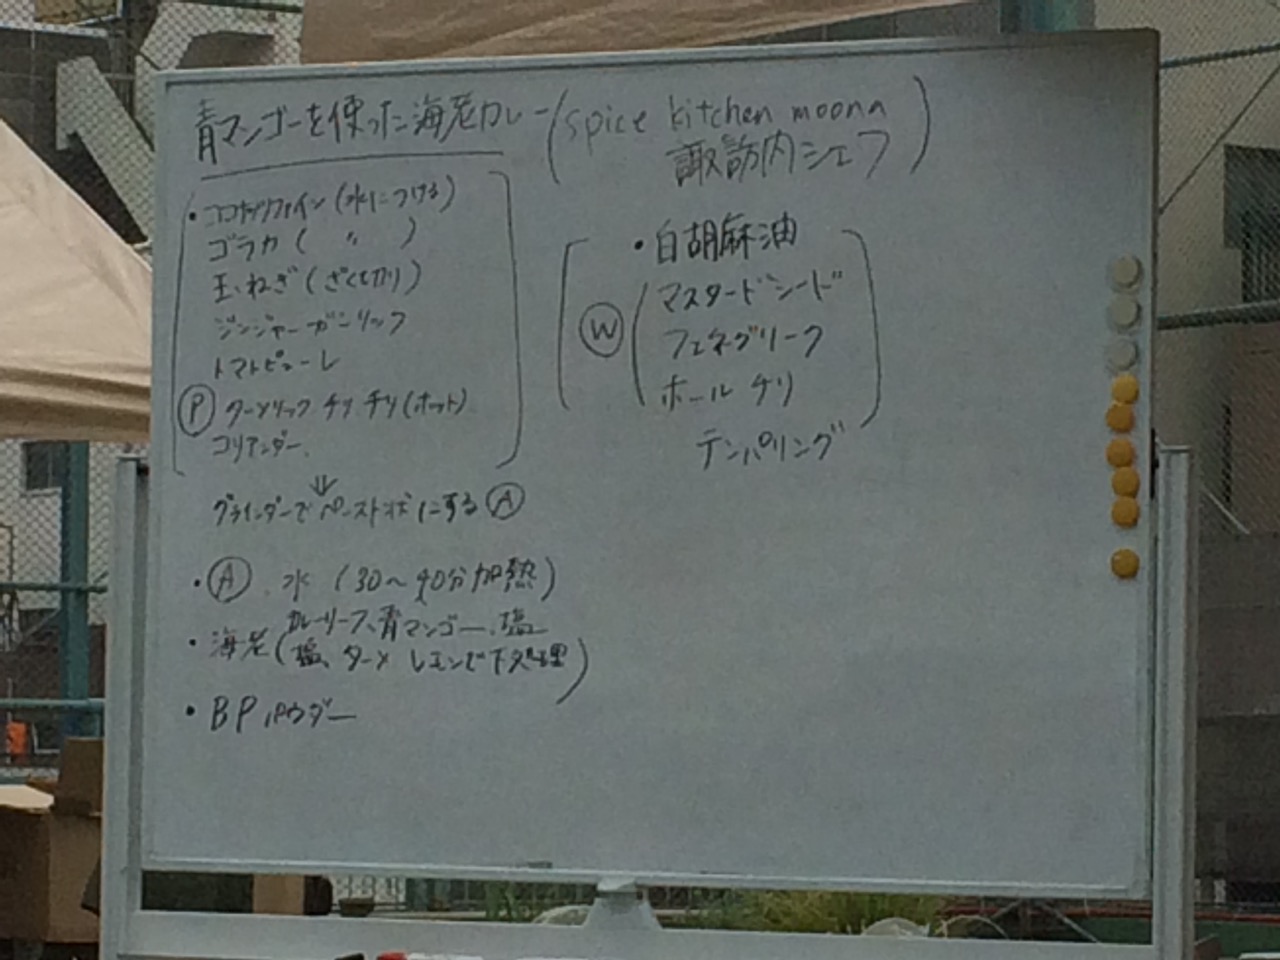 青マンゴーを使った海老カレー(spice kitchen moona
諏訪内シェフ)
・ココナッツファイン(水につける)
ゴラカ( 〃 )
玉ねぎ(ざく切り)
ジンジャーガーリック
トマトピューレ
Ⓟ ターメリック チリ チリ(ホット)
コリアンダー、
⇓
グラインダーでペースト状にする Ⓐ
・Ⓐ、水 (30〜40分加熱)
カレーリーフ、青マンゴー、塩
・海老(塩、ターメ レモンで下処理)
・BPパウダー
・白胡麻油
Ⓦ
マスタードシード
フェネグリーク
ホールチリ
テンパリング